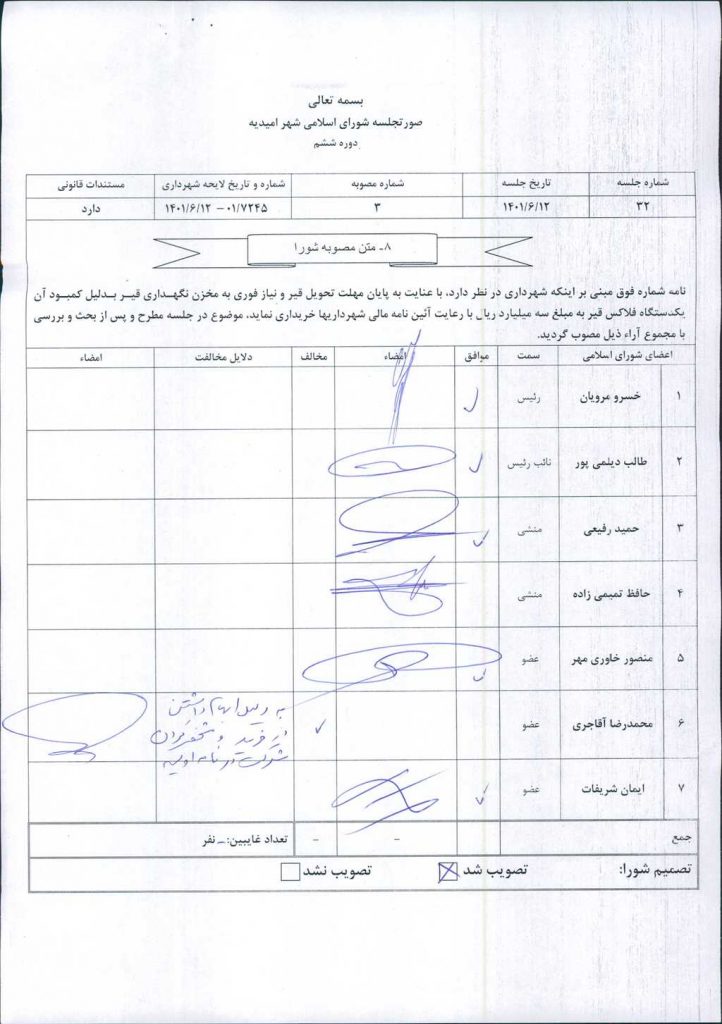 بسمه تعالی
صورتجلسه شورای اسلامی شهر امیدیه
دوره ششم
شماره جلسه تاریخ جلسه شماره مصوبه شماره و تاریخ لایحه شهرداری مستندات قانونی
۳۲ ۱۴۰۱/۶/۱۲ ۳ ۰۱/۷۲۴۵ – ۱۴۰۱/۶/۱۲ دارد
۸- متن مصوبه شورا
نامه شماره فوق مبنی بر اینکه شهرداری در نظر دارد، با عنایت به پایان مهلت تحویل قیر و نیاز فوری به مخزن نگهداری قیر بدلیل کمبود آن
یکدستگاه فلاکس قیر به مبلغ سه میلیارد ریال با رعایت آئین نامه مالی شهرداریها خریداری نماید، موضوع در جلسه مطرح و پس از بحث و بررسی
با مجموع آراء ذیل مصوب گردید.
اعضای شورای اسلامی سمت موافق امضاء مخالف دلایل مخالفت امضاء
۱ خسرو مرویان رئیس
۲ طالب دیلمی پور نائب رئیس
۳ حمید رفیعی منشی
۴ حافظ تمیمی زاده منشی
۵ منصور خاوری مهر عضو
۶ محمدرضا آقاجری عضو
به دلیل ابهام داشتن
در خرید و
شرکت در نامه اولیه
۷ ایمان شریفات عضو
جمع - - تعداد غایبین: – نفر
تصمیم شورا: تصویب شد تصویب نشد